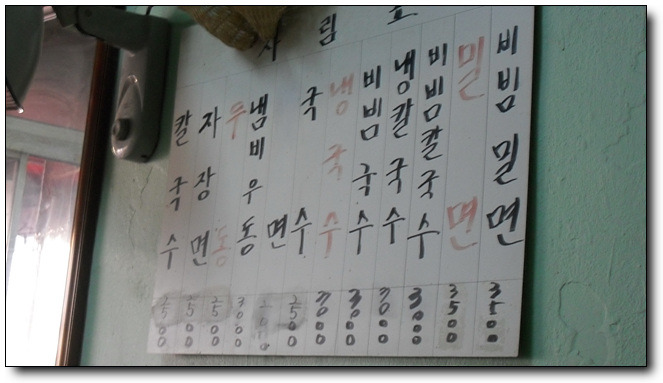 림
칼국수 2500
자장면 2500
우동 2500
냄비우동 3000
면
국수 2500
냉국수 3000
비빔국수 3000
냉칼국수 3000
비빔칼국수 3000
밀면 3500
비빔밀면 3500